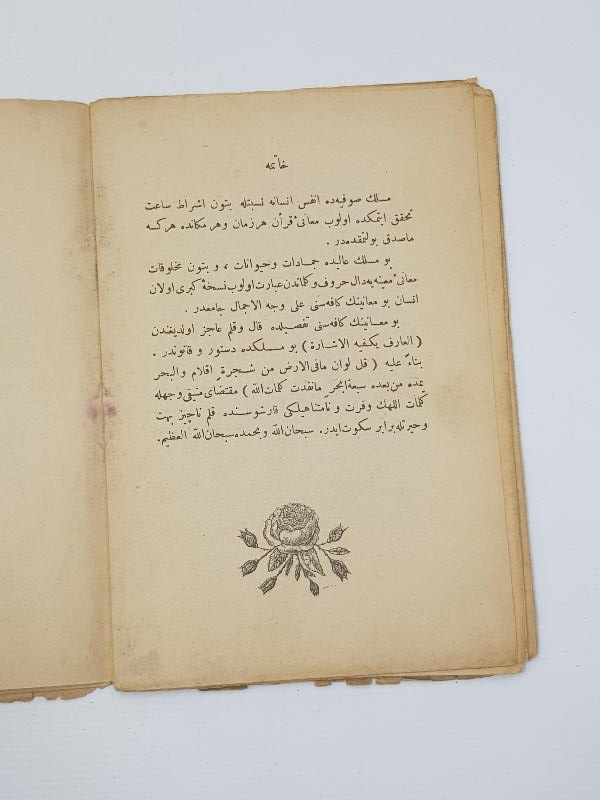 خاتمه
مسلك صوفيه‌ده انفس انسانه نسبتله بتون اشراط ساعت
تحقق ايتمكده اولوب معانىٔ قرآن هر زمان و هر مكانده هركسه
ماصدق بولنمقده‌در .
بو مسلك عاليده جمادات وحيوانات ، و بتون مخلوقات
معانىٔ معينه‌يه دال حروف و كلماتدن عبارت اولوب نسخهٔ كبرى اولان
انسان بو معانينك كافه‌سنى على وجه الاجمال جامعدر .
بو معانينك كافه‌سنى تفصيلده قال وقلم عاجز اولديغندن
( العارف يكفيه الاشارة ) بو مسلكده دستور و قانوندر .
بناءً عليه ( قل لوان مافى‌الارض من شجرةٍ اقلام والبحر
يمده من بعده سبعة ابحرٍ مانفدت كلمات الله ) مقتضاى منيفى وجهله
كلمات اللهك وفرت و نامتناهيلكى قارشوسنده قلم ناچيز بهت
وحيرتله برابر سكوت ايدر. سبحان الله و بحمده سبحان الله العظيم.